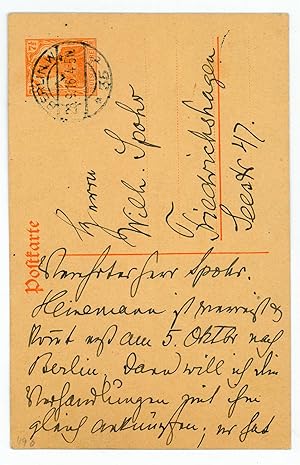 7½
BERLIN W
35
Postkarte
Herrn
Wilh. Spohr
Friedrichshagen
Seestr 47.
Verehrter Herr Spohr.
Heinemann ist verreist &
kommt erst am 5. Oktbr nach
Berlin, dann will ich die
Verhandlungen mit ihm
gleich anknüpfen; er hat